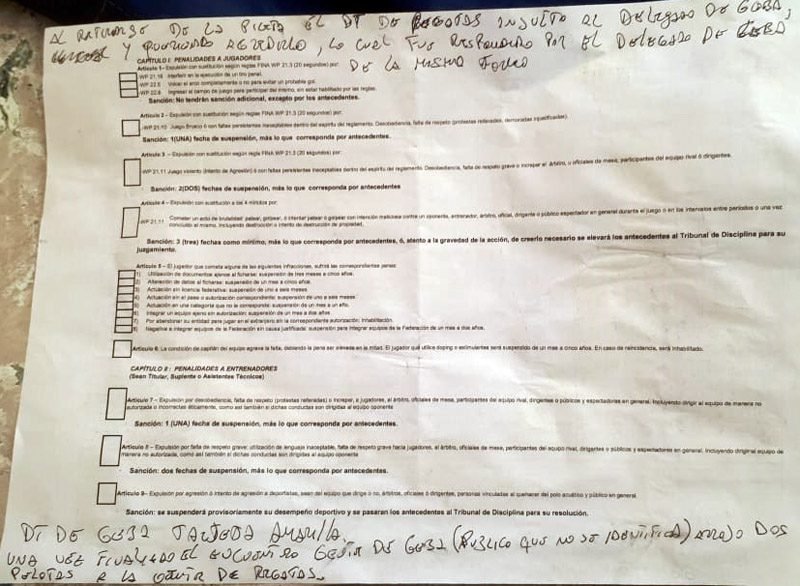 AL RETIRARSE DE LA PILETA EL DT DE REGATAS INSULTO AL DELEGADO DE GEBA,
Y QUERIENDO AGREDIRLO, LO CUAL FUE RESPONDIDO POR EL DELEGADO DE GEBA
DE LA MISMA FORMA
CAPÍTULO I: PENALIDADES A JUGADORES
Artículo 1- Expulsión con sustitución según reglas FINA WP 21.3 (20 segundos) por:
WP 21.18 Interferir en la ejecución de un tiro penal.
WP 22.5 Volcar el arco completamente o no para evitar un probable gol.
WP 22.6 Ingresar al campo de juego para participar del mismo, sin estar habilitado por las reglas.
Sanción: No tendrán sanción adicional, excepto por los antecedentes.
Artículo 2 – Expulsión con sustitución según regla FINA WP 21.3 (20 segundos) por:
WP 21.10 Juego Brusco ó con faltas persistentes inaceptables dentro del espíritu del reglamento. Desobediencia, falta de respeto (protestas reiteradas, demoras injustificadas).
Sanción: 1(UNA) fecha de suspensión, más lo que corresponda por antecedentes.
Artículo 3 – Expulsión con sustitución según regla FINA WP 21.3 (20 segundos) por:
WP 21.11 Juego violento (Intento de Agresión) ó con faltas persistentes inaceptables dentro del espíritu del reglamento. Desobediencia, falta de respeto grave o increpar al árbitro, u oficiales de mesa, participantes del equipo rival ó dirigentes.
Sanción: 2(DOS) fechas de suspensión, más lo que corresponda por antecedentes
Artículo 4 – Expulsión con sustitución a los 4 minutos por:
WP 21.11 Cometer un acto de brutalidad: patear, golpear, ó intentar patear ó golpear con intención maliciosa contra un oponente, entrenador, árbitro, oficial, dirigente o público espectador en general durante el juego o en los intervalos entre períodos o una vez
concluido el mismo, incluyendo destrucción o intento de destrucción de propiedad.
Sanción: 3 (tres) fechas como mínimo, más lo que corresponda por antecedentes, ó, atento a la gravedad de la acción, de creerlo necesario se elevará los antecedentes al Tribunal de Disciplina para su
juzgamiento.
Artículo 5 – El jugador que cometa alguna de las siguientes infracciones, sufrirá las correspondientes penas:
1) Utilización de documentos ajenos al ficharse: suspensión de tres meses a cinco años.
2) Alteración de datos al ficharse: suspensión de un mes a cinco años.
3) Actuación sin licencia federativa: suspensión de uno a seis meses
4) Actuación sin el pase o autorización correspondiente: suspensión de uno a seis meses
5) Actuación en una categoría que no le corresponde: suspensión de un mes a un año.
6) Integrar un equipo ajeno sin autorización: suspensión de un mes a dos años
7) Por abandonar su entidad para jugar en el extranjero sin la correspondiente autorización: Inhabilitación.
8) Negativa a integrar equipos de la Federación sin causa justificada: suspensión para integrar equipos de la Federación de un mes a dos años.
Artículo 6: La condición de capitán del equipo agrava la falta, debiendo la pena ser elevada en la mitad. El jugador que utilice doping o estimulantes será suspendido de un mes a cinco años. En caso de reincidencia, será inhabilitado.
CAPÍTULO II: PENALIDADES A ENTRENADORES
(Sean Titular, Suplente o Asistentes Técnicos)
Artículo 7 - Expulsión por desobediencia, falta de respeto (protestas reiteradas) o increpar, a jugadores, al árbitro, oficiales de mesa, participantes del equipo rival, dirigentes o públicos y espectadores en general. Incluyendo dirigir al equipo de manera no
autorizada o incorrectas éticamente, como así también si dichas conductas son dirigidas al equipo oponente
Sanción: 1 (UNA) fecha de suspensión, más lo que corresponda por antecedentes.
Artículo 8 – Expulsión por falta de respeto grave: utilización de lenguaje inaceptable, falta de respeto grave hacia jugadores, al árbitro, oficiales de mesa, participantes del equipo rival, dirigentes o públicos y espectadores en general. Incluyendo dirigir al equipo de
manera no autorizada, como así también si dichas conductas son dirigidas al equipo oponente
Sanción: dos fechas de suspensión, más lo que corresponda por antecedentes.
Artículo 9– Expulsión por agresión ó intento de agresión a deportistas, sean del equipo que dirige o no, árbitros, oficiales ó dirigentes, personas vinculadas al quehacer del polo acuático y público en general.
Sanción: se suspenderá provisoriamente su desempeño deportivo y se pasaran los antecedentes al Tribunal de Disciplina para su resolución.
DT DE GEBA TARJETA AMARILLA.
UNA VEZ FINALIZADO EL ENCUENTRO GENTE DE GEBA (PUBLICO QUE NO SE IDENTIFICA) ARROJO DOS
PELOTAS A LA GENTE DE REGATAS.